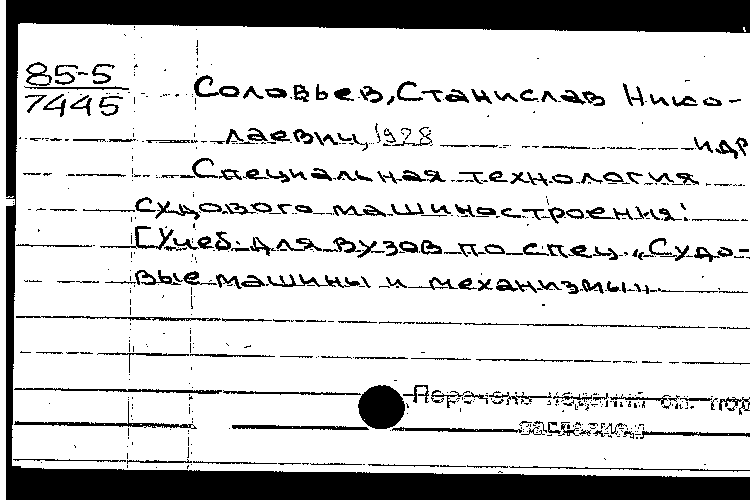 85-5
7445
Соловьев, Станислав Нико-
лаевич, 1928
и др
Специальная технология
судового машиностроения:
[Учеб. для вузов по спец. „Судо-
вые машины и механизмы".
Перечень изданий см. под
заглавием